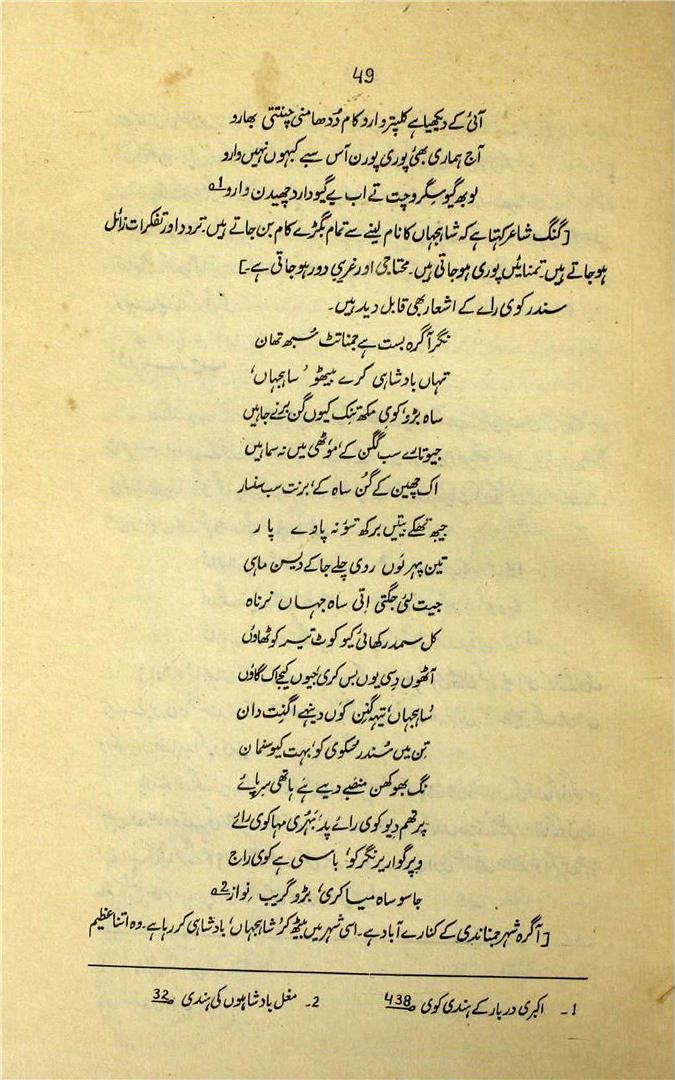 49
آئی کے دیکھیا ہے کلپترو اروکام دُدھا منی چنتتی بھارو
آج ہماری بھئی پوری پورن آس سبے کبہوں نہیں وارو
لوبھ گیو سگرو چت تے اب بے گیو دارد چھیدن وارو 1؎
[گنگ شاعر کہتا ہے کہ شاہجہاں کا نام لینے سے تمام بگڑے کام بن جاتے ہیں۔ تردد اور تفکرات زائل
ہو جاتے ہیں۔ تمنائیں پوری ہو جاتی ہیں۔ محتاجی اور غریبی دور ہو جاتی ہے۔]
سندر کوی رائے کے اشعار بھی قابل دید ہیں۔
نگر آگرہ بست ہے جمنا تٹ سُبھ تھان
تہاں بادشاہی کرے بیٹھو 'ساہجہاں'
ساہ بڑو، کوی مکھ تنک کیوں گن برنے جاہیں
جیوتارے سب گگن کے، موٹھی میں نہ سماہیں
اک چھین کے گُن ساہ کے، برنت سب سنسار
جیبھ تھکے بیتیں برکھ تئو نہ پاوے پار
تین پہر لوں روی چلے جاکے دیسن ماہی
جیت لئی جگتی اتی ساہ جہاں نرناہ
کل سمدر کھائی کیو کوٹ تیر کو ٹھاوں
آٹھوں دِسی یوں بس کری جیوں کیجے اک گاؤں
ساہجہاں، تیہہ گُنِن کوں دینہے اگنِت دان
تِن میں سُندر سکوی کو، بہت کیو سنمان
نگ بھوکھن منصبے دیے ہے ہاتھی سرپائے
پرتھم دیو کوی رائے پد، بَہُری مہا کوی رائے
وِپر گواریر نگر کو، باسی ہے کوی راج
جاسو ساہ میا کری، بڑو گریب نواز 2؎
[آگرہ شہر جمنا ندی کے کنارے آباد ہے۔ اسی شہر میں بیٹھ کر 'شاہجہاں' بادشاہی کر رہا ہے۔ وہ اتنا عظیم
1۔ اکبری دربار کے ہندی کوی ص 438 2۔ مغل بادشاہوں کی ہندی ص 32